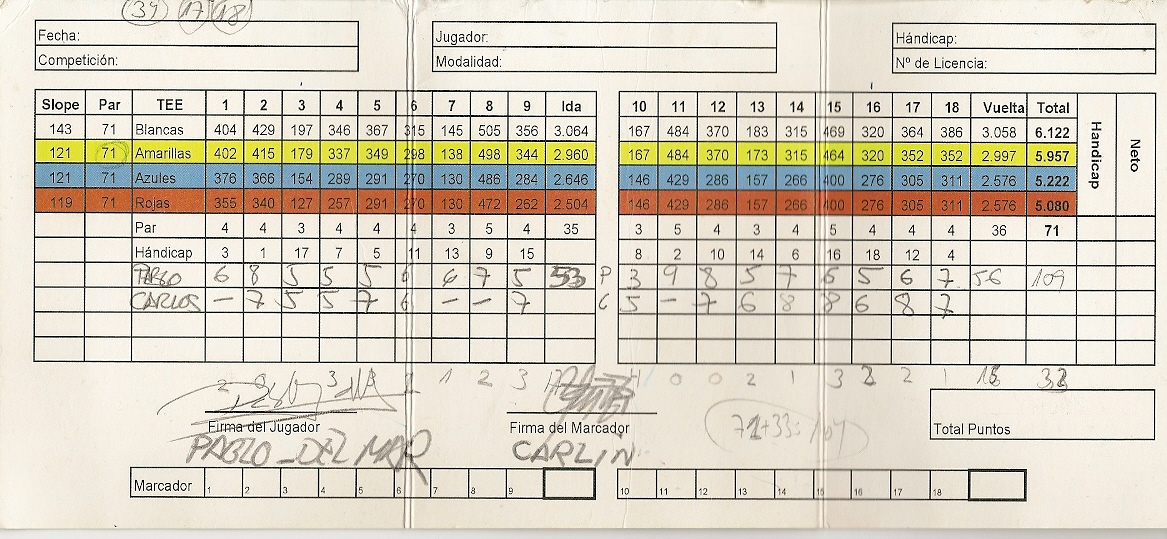 34 17 18
Fecha: Jugador: Hándicap:
Competición: Modalidad: Nº de Licencia:
Slope Par TEE 1 2 3 4 5 6 7 8 9 Ida 10 11 12 13 14 15 16 17 18 Vuelta Total Handicap Neto
143 71 Blancas 404 429 197 346 367 315 145 505 356 3.064 167 484 370 183 315 469 320 364 386 3.058 6.122
121 71 Amarillas 402 415 179 337 349 298 138 498 344 2.960 167 484 370 173 315 464 320 352 352 2.997 5.957
121 71 Azules 376 366 154 289 291 270 130 486 284 2.646 146 429 286 157 266 400 276 305 311 2.576 5.222
119 71 Rojas 355 340 127 257 291 270 130 472 262 2.504 146 429 286 157 266 400 276 305 311 2.576 5.080
Par 4 4 3 4 4 4 3 5 4 35 3 5 4 3 4 5 4 4 4 36 71
Hándicap 3 1 17 7 5 11 13 9 15 8 2 10 14 6 16 18 12 4
PABLO 6 8 3 5 5 6 6 7 5 53 P 3 9 8 5 7 6 5 6 7 56 109
CARLOS - 7 5 5 7 6 - - 7 C 5 - 7 6 8 8 6 8 7
1 2 3 0 0 2 1 3 2 2 1
Firma del Jugador Firma del Marcador Total Puntos
PABLO_DEL MAR CARLIN
Marcador 1 2 3 4 5 6 7 8 9 10 11 12 13 14 15 16 17 18